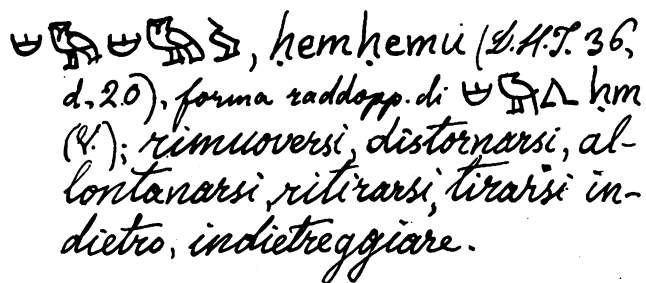 𓎛𓅓𓎛𓅓, ḥemḥemu (D.H.T. 36,
d, 20), forma raddopp. di ḥm
(V.); rimuoversi, distornarsi, al-
lontanarsi, ritirarsi, tirarsi in-
dietro, indietreggiare.